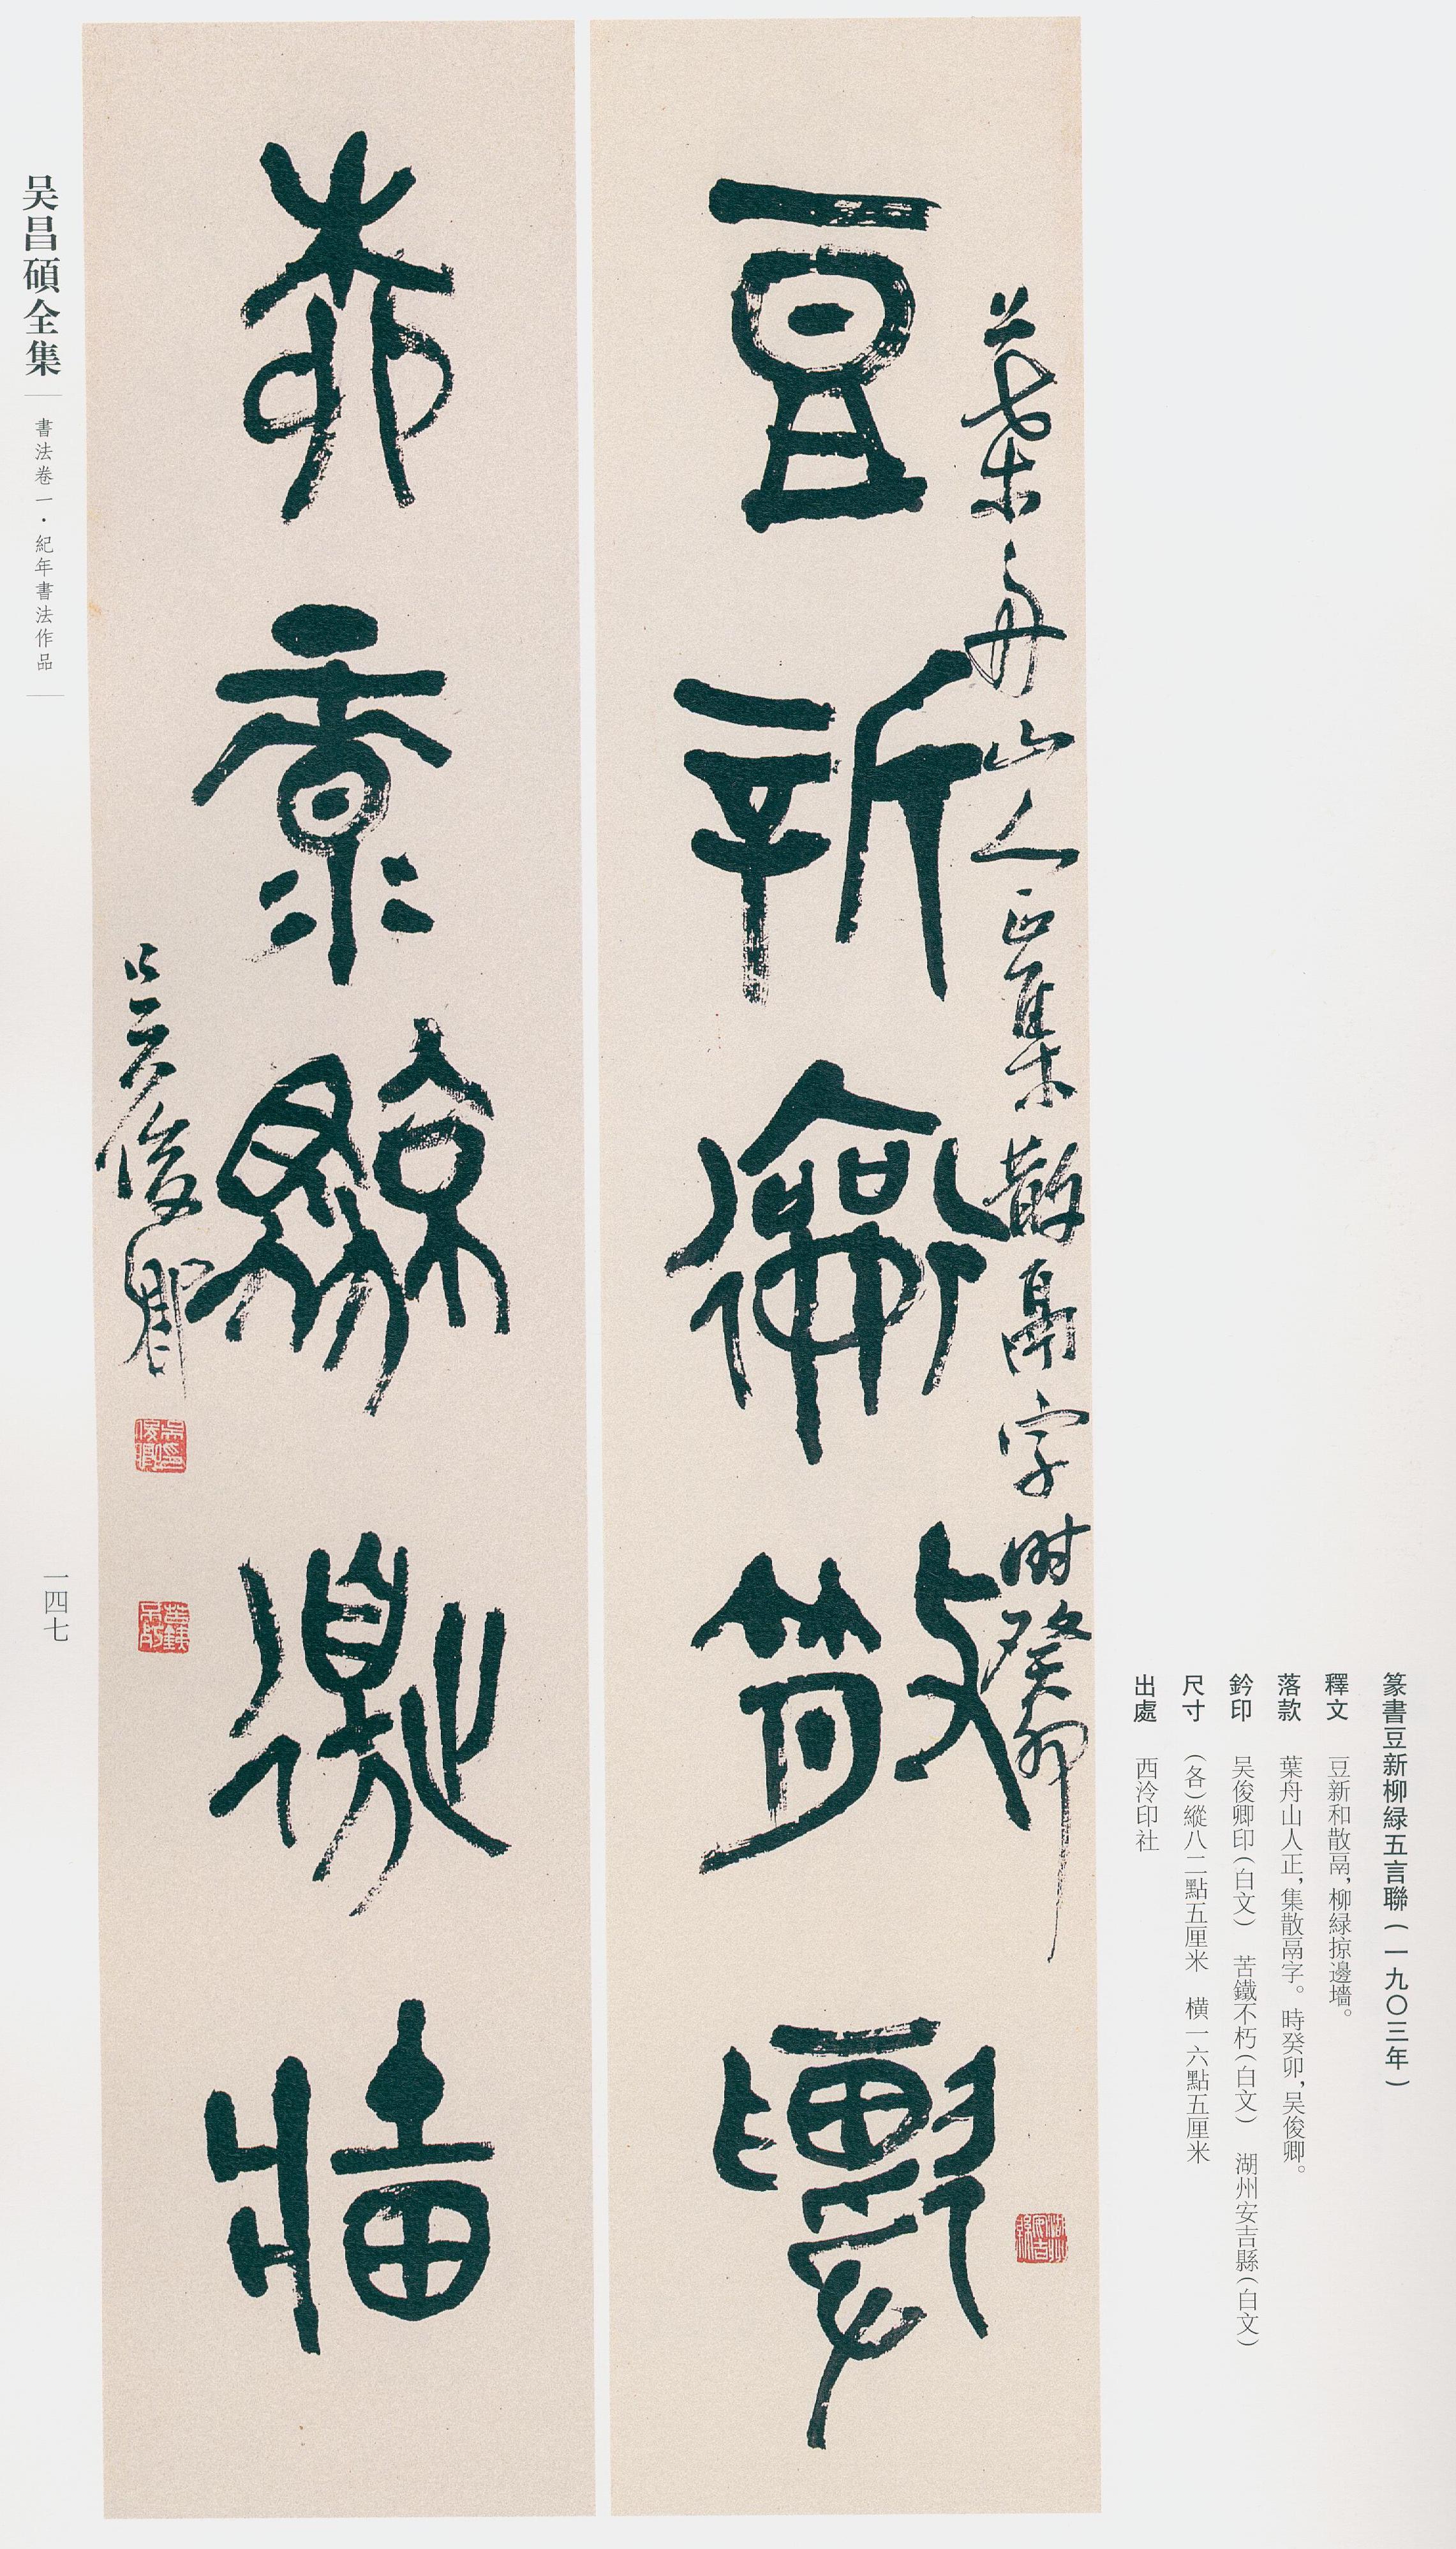 篆書豆新柳緑五言聯(一九〇三年)
釋文 豆新和散鬲,柳緑掠邊墻。
落款 葉舟山人正,集散鬲字。時癸卯,吴俊卿。
鈐印 吴俊卿印(白文) 苦鐵不朽(白文) 湖州安吉縣(白文)
尺寸 (各)縱八二點五厘米 横一六點五厘米
出處 西泠印社
葉舟山人正集散鬲字時癸卯
湖州安吉縣
豆新龢散
柳
牆
吴俊卿
吴俊卿印
苦鐵不朽
吴昌碩全集
書法卷一·紀年書法作品
一四七